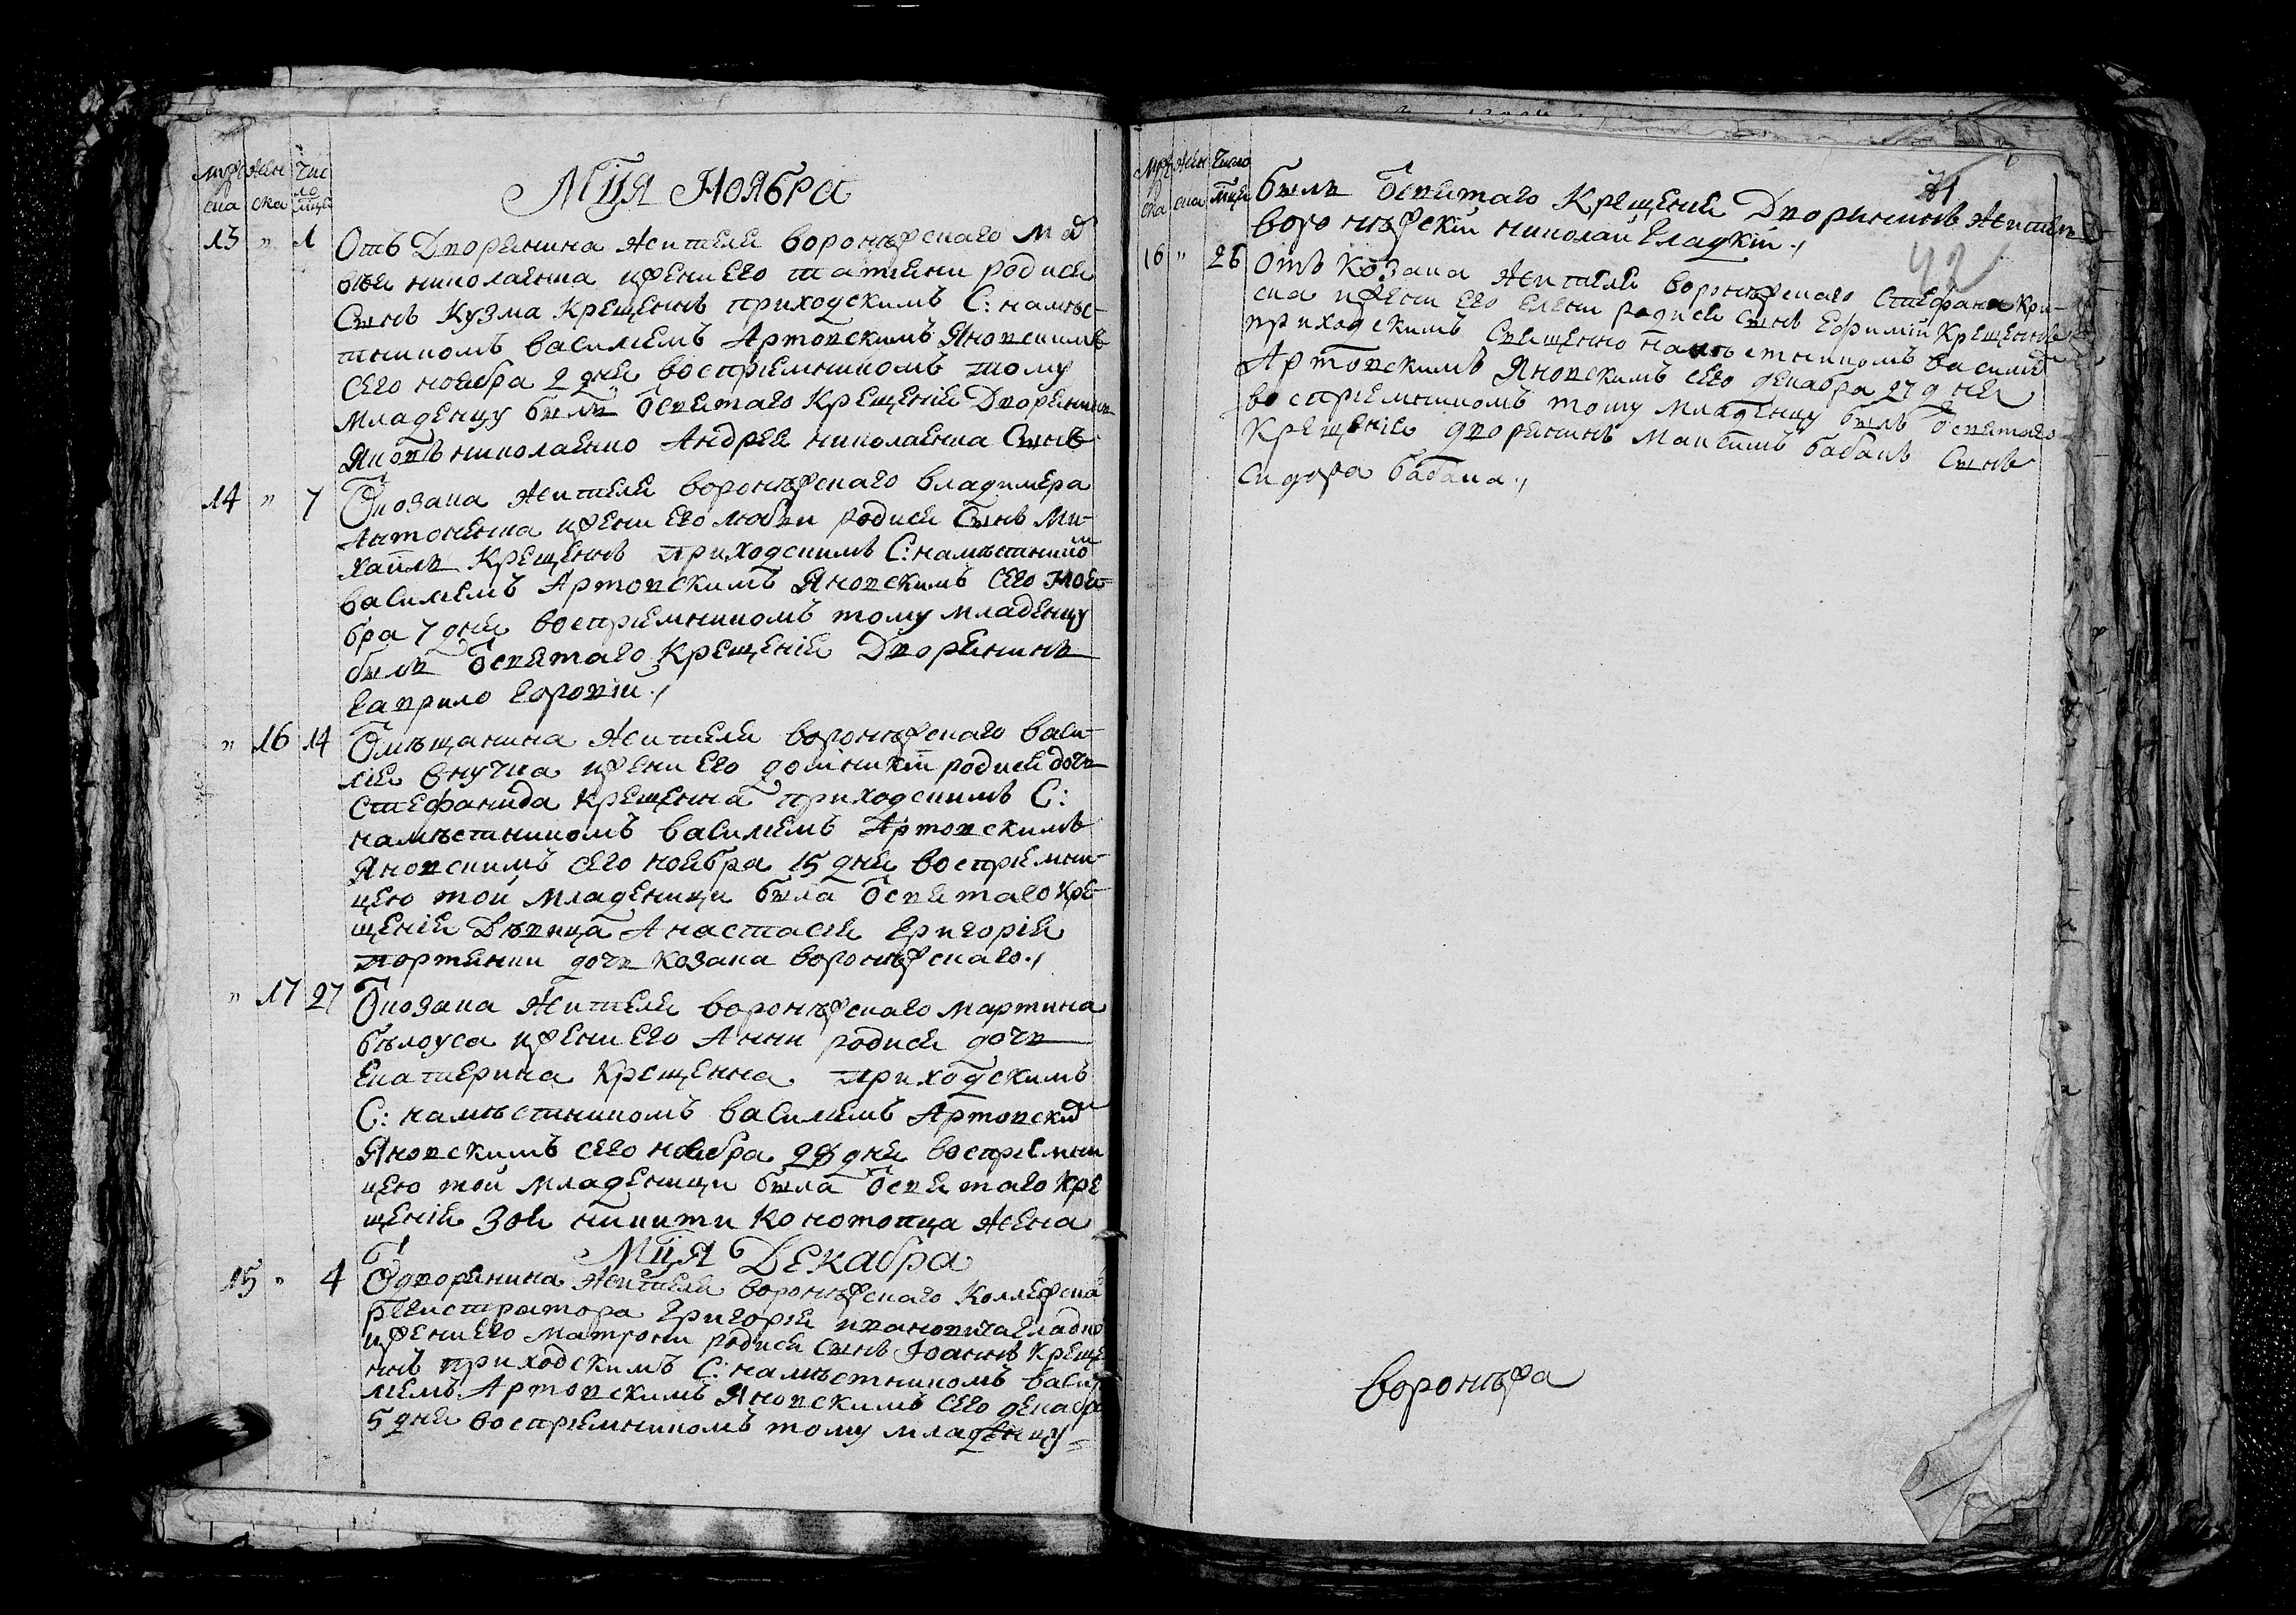 муж жен Чис
ска ска ло мця
Мця Ноября
13 " 1 Отъ Дворянина жителя воронѣжскаго Мат
вѣя николаенка и жени его татіяни родися
Сынъ Кузма Крещеннъ приходскимъ С: намѣс-
тникомъ василіемъ Артовскимъ Яновскимъ
сего ноября 2 дня воспріемникомъ тому
младенцу былъ от святаго Крещенія Дворянинъ
Яковъ николаенко Андрея николаенка Сынъ
14 " 7 От козака жителя воронѣжскаго владимера
Антоненка и жени его любви родися Сынъ Ми-
хаилъ Крещеннъ приходскимъ С: намѣстником
василіемъ Артовскимъ Яновскимъ сего ноя-
бра 7 дня воспріемникомъ тому младенцу
былъ от святаго Крещенія Дворянинъ
гаврило боровій ./
" 16 14 От мѣщанина жителя воронѣжскаго васи-
лія внучка и жени его домникіи родися дочь
Стефанида Крещенна приходскимъ С:
намѣстникомъ василіемъ Артовскимъ
Яновскимъ сего ноября 15 дня воспріемни-
цею той младеници была от святаго кре-
щенія Дѣвица Анастасія григорія
портянки дочь козака воронѣжскаго ./
" 17 27 От козака жителя воронѣжскаго мартина
бѣлоуса и жени его Анни родися дочь
Екатерина Крещенна приходскимъ
С: намѣстникомъ василіемъ Артовским
Яновскимъ сего ноября 28 дня воспріемни
цею той младеници была от святаго кре
щенія Зоя никити Конотопца жена
Мця Декабра
15 " 4 От дворянина жителя воронѣжскаго Коллежска
регистратора григорія ивановича гладко
и жени его матрони родися Сынъ Іоаннъ Креще
ннъ приходскимъ С: намѣстникомъ васи
ліемъ Артовскимъ Яновскимъ сего декабра
5 дня воспріемникомъ тому младенцу =
муж жен Число
ска ска мця
41
42
былъ от святаго Крещенія Дворянинъ жител
воронѣжскій николай гладкій ./
16 " 26 Отъ козака жителя воронѣжскаго Стефана Кри-
ска и жени его елени родися Сынъ Ефимій Крещеннъ
приходскимъ Священно намѣстникомъ василіем
Артовскимъ Яновскимъ сего декабра 27 дня
воспріемникомъ тому младенцу былъ от святаго
Крещенія дворянинъ Максимъ бабакъ Сынъ
Сидора бабака ./
воронѣжа